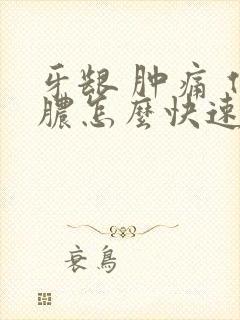 牙龈肿痛
膿怎麼快速
衰鳥